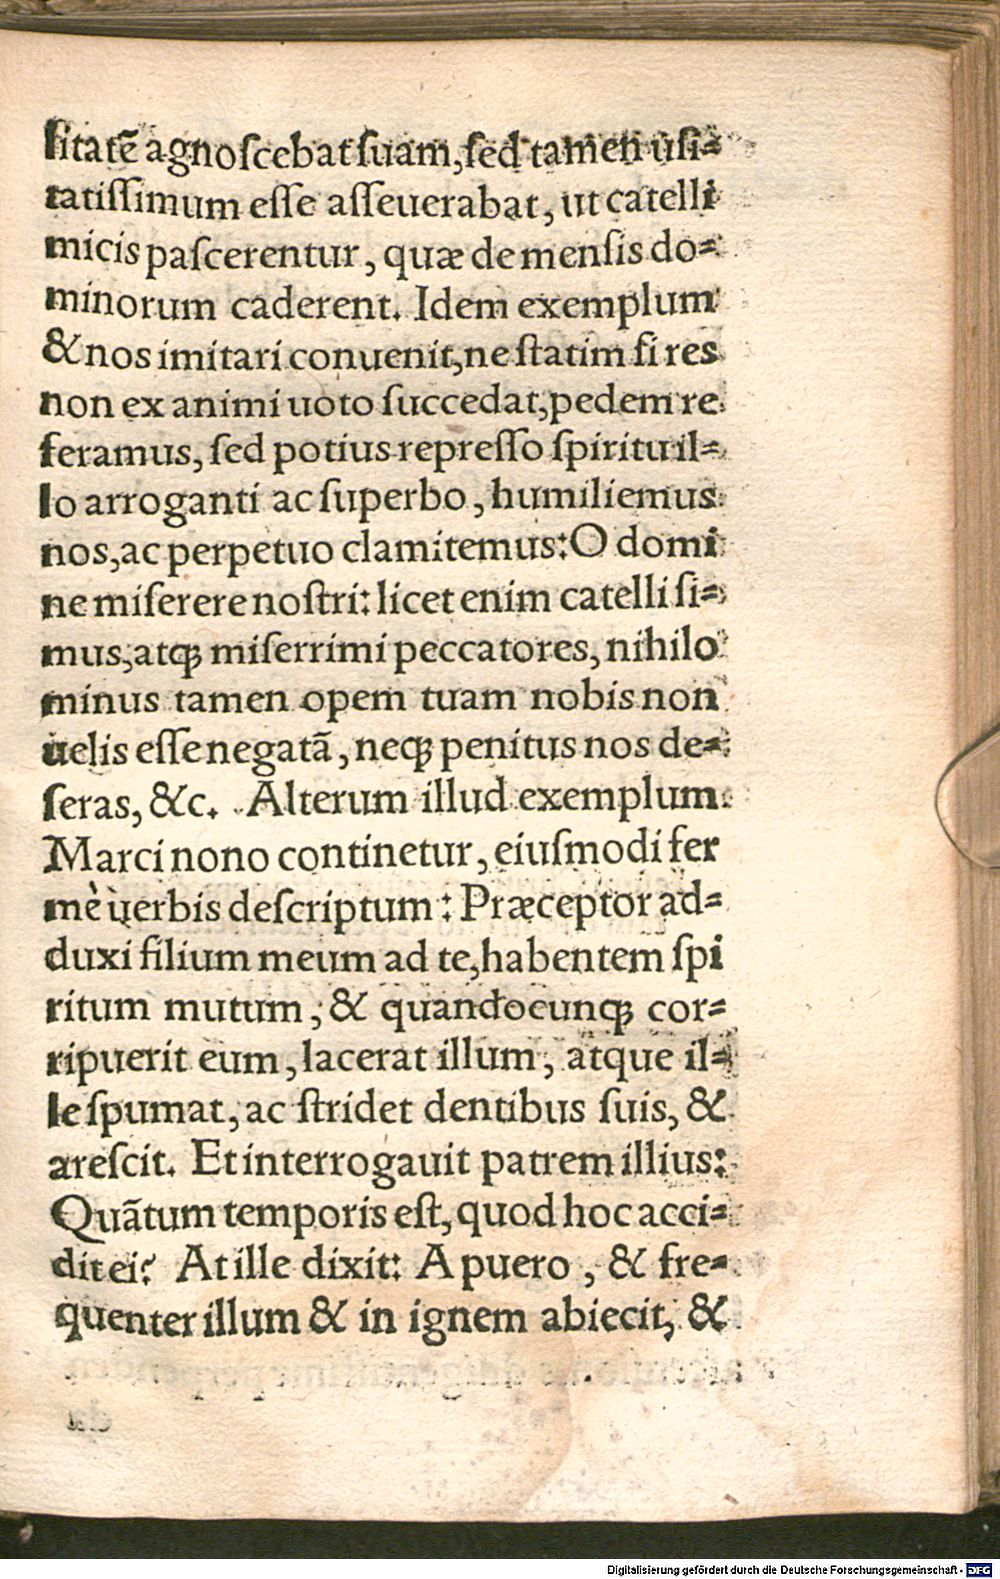 ſitatē agnoſcebat ſuam, ſed tamen uſi⸗
tatiſſimum eſſe aſſeuerabat, ut catelli
micis paſcerentur, quæ de menſis do⸗
minorum caderent. Idem exemplum
& nos imitari conuenit, ne ſtatim ſi res
non ex animi uoto ſuccedat, pedem re
feramus, ſed potius repreſſo ſpiritu il⸗
lo arroganti ac ſuperbo, humiliemus
nos, ac perpetuo clamitemus: O domi
ne miſerere noſtri: licet enim catelli ſi⸗
mus, atqꝫ miſerrimi peccatores, nihilo
minus tamen opem tuam nobis non
uelis eſſe negatā, neqꝫ penitus nos de⸗
ſeras, &c. Alterum illud exemplum
Marci nono continetur, eiuſmodi fer
mè uerbis deſcriptum: Præceptor ad⸗
duxi filium meum ad te, habentem ſpi
ritum mutum, & quandocunqꝫ cor⸗
ripuerit eum, lacerat illum, atque il⸗
le ſpumat, ac ſtridet dentibus ſuis, &
areſcit. Et interrogauit patrem illius:
Quātum temporis eſt, quod hoc acci⸗
dit ei? At ille dixit: A puero, & fre⸗
quenter illum & in ignem abiecit, &
Digitalisierung gefördert durch die Deutsche Forschungsgemeinschaft - DFG